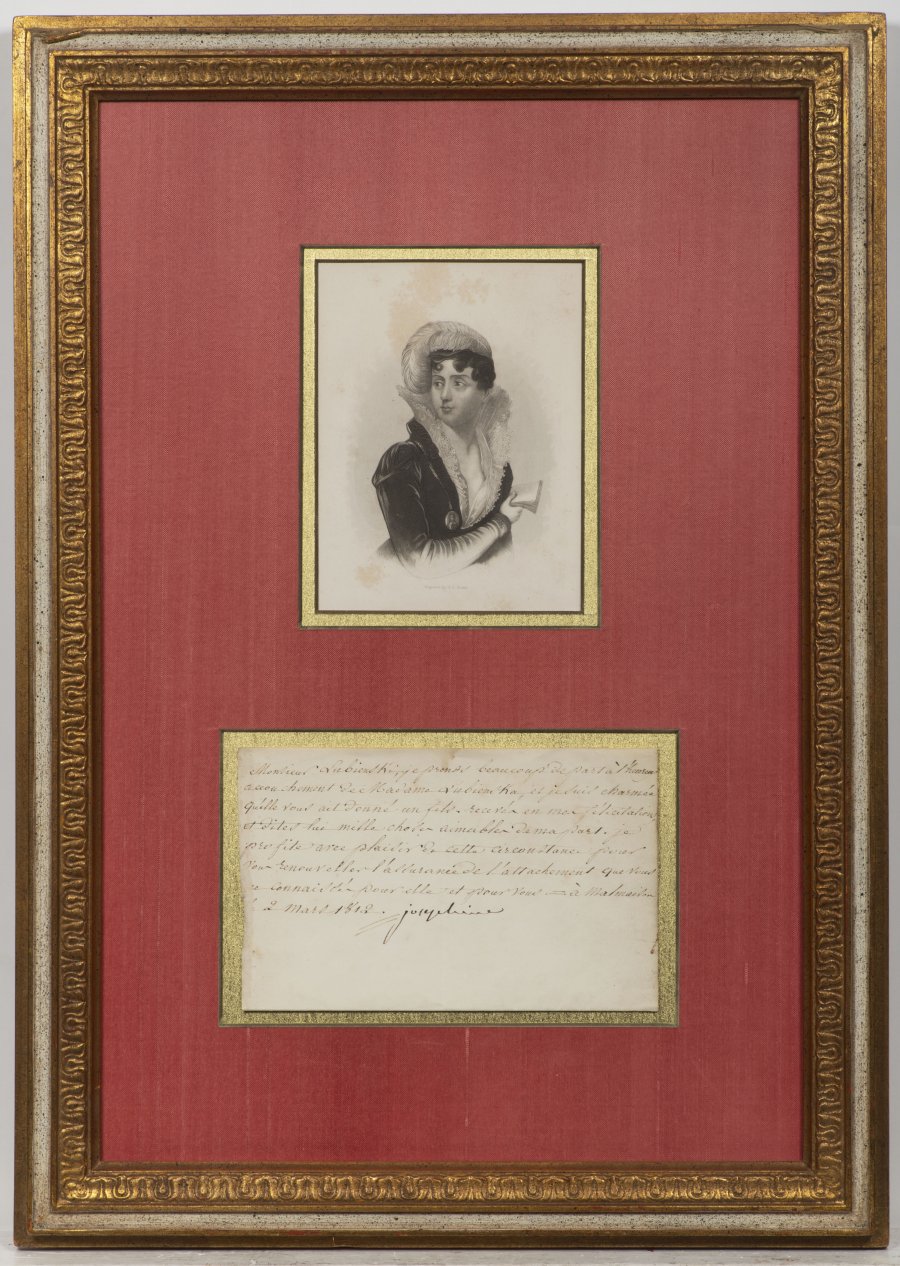 Monsieur Lubienski, je prends beaucoup de part à l'heureux
accouchement de Madame Lubienska, et je suis charmée
qu'elle vous ait donné un fils. recevés en mes félicitations
et dites lui mille choses aimables de ma part. je
profite avec plaisir de cette circonstance pour
vous renouveller l'assurance de l'attachement que vous
me connaissés pour elle et pour vous à Malmaison
le 2 mars 1812. joséphine